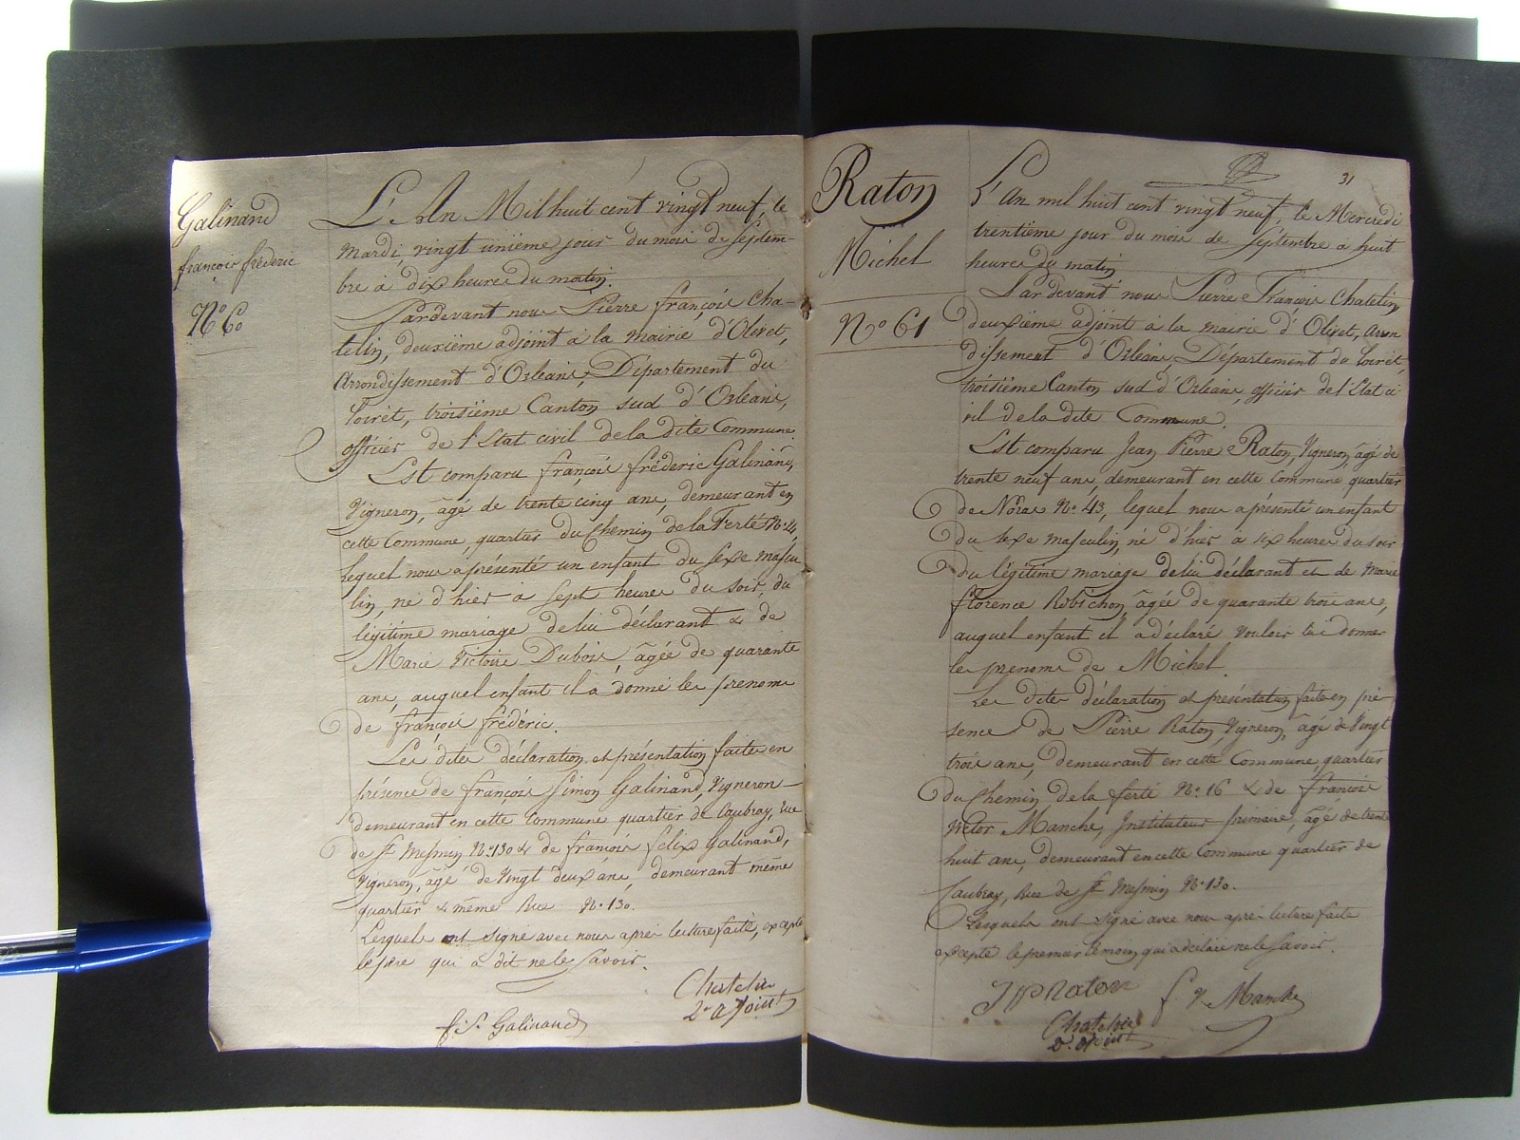 Galinand
françois fréderic
N° 60
L'An Mil huit cent vingt neuf, le
Mardi, vingt unième jour du mois de Septem-
bre à dix heures du matin.
Pardevant nous Pierre françois Cha-
telin, deuxième adjoint à la Mairie d'Olivet,
Arrondissement d'Orléans, Département du
Loiret, troisième Canton sud d'Orléans,
officier de l'Etat civil de la dite Commune.
Est comparu françois fréderic Galinand,
Vigneron, âgé de trente cinq ans, demeurant en
cette Commune, quartier du Chemin de la Ferté N°
lequel nous a présenté un enfant du sexe mascu
lin, né d'hier à sept heures du soir, du
légitime mariage de lui déclarant & de
Marie Victoire Dubois, âgée de quarante
ans, auquel enfant il a donné les prenoms
de françois fréderic.
Les dites déclaration et présentation faites en
présence de françois Simon Galinand, Vigneron
demeurant en cette Commune quartier de Caubray, rue
de St Mesmin N° 130 & de françois felix Galinand,
Vigneron, âgé de Vingt deux ans, demeurant même
quartier & même Rue N° 130.
Lesquels ont signé avec nous après lecture faite, excepté
le père qui a dit ne le savoir.
f. S. Galinand
Chatelin
2e adjoint
31
Raton
Michel
N° 61
L'An mil huit cent vingt neuf, le Mercredi
trentième jour du mois de Septembre à huit
heures du matin
Pardevant nous Pierre François Chatelin
deuxième adjoint à la mairie d'Olivet, arron
dissement d'Orléans, Département du Loiret,
troisième Canton sud d'Orléans, officier de l'Etat ci
vil de la dite Commune.
Est comparu Jean Pierre Raton, Vigneron, âgé de
trente neuf ans, demeurant en cette Commune quartier
de N° 43, lequel nous a présenté un enfant
du sexe masculin, né d'hier à six heures du soir
du légitime mariage de lui déclarant et de Marie
florence Robichon, âgée de quarante trois ans,
auquel enfant il a déclaré vouloir lui donner
le prenoms de Michel.
Les dites déclaration et présentation faites en pré
sence de Pierre Raton, Vigneron, âgé de Vingt
trois ans, demeurant en cette Commune, quartier
du Chemin de la ferté N° 16 & de françois
Victor Manche, Instituteur primaire, âgé de trente
huit ans, demeurant en cette Commune quartier de
Caubray, Rue de St Mesmin N° 130.
Lesquels ont signé avec nous après lecture faite
excepté le premier témoin qui a déclaré ne le savoir.
J P Raton
f V Manche
Chatelin
2e adjoint